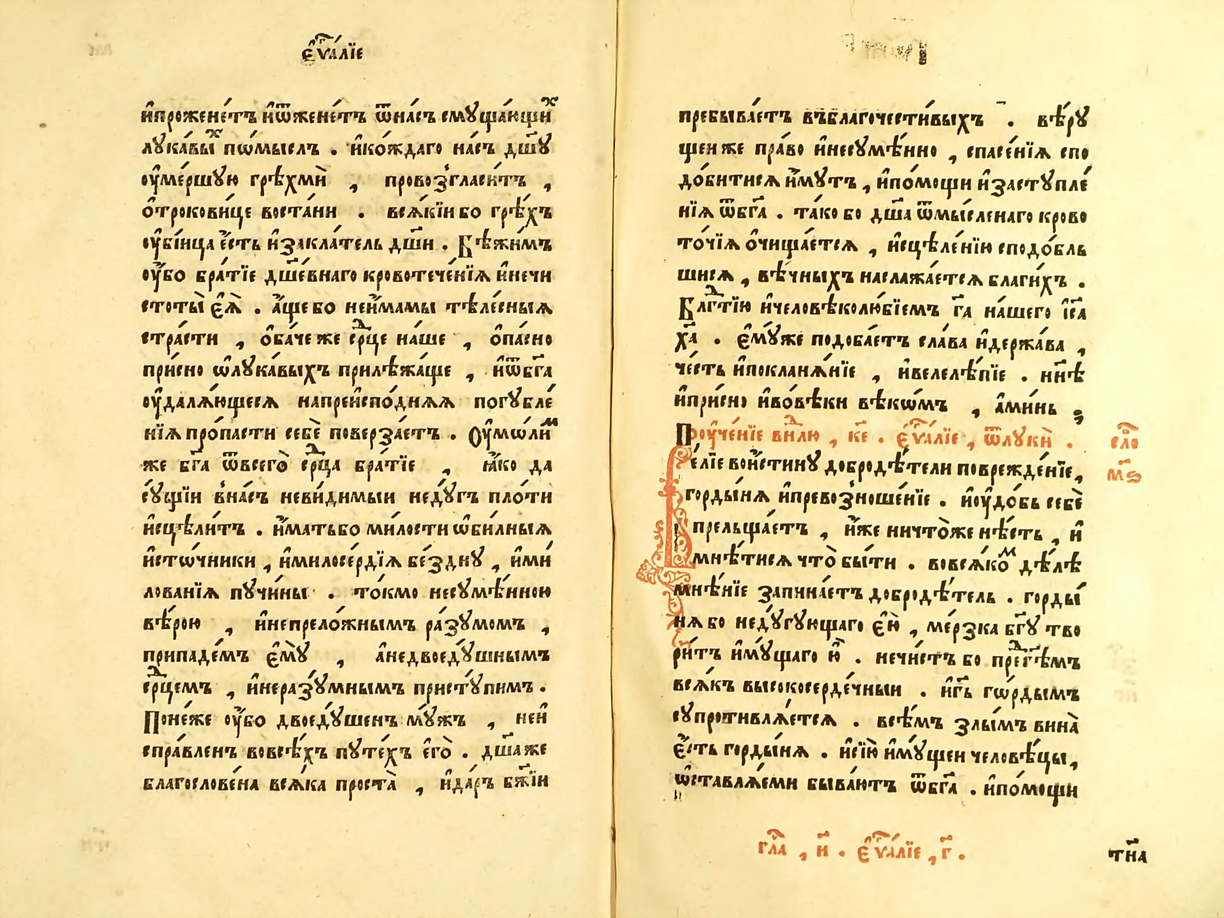 є҆ѵⷢ҇алїе
и҆прожене́тъ и҆ѿжене́тъ ѿна́съ смꙋща́ющиⷯ
лꙋка́выⷯ помы́слъ . и҆ко́ждаго на́съ дш҃ꙋ
оу҆ме́ршꙋю грѣхмѝ , провоз̾гласи́тъ ,
ѻ҆трокови́це воста́ни . вся́кїи бо грѣ́хъ
оу҆бі́ица є҆́сть и҆закла́тель дш҃и . Бѣжи́мъ
оу҆́бо бра́тїе дш҃е́внаго кровотече́нїѧ и҆нечи
стоты̀ є҆ѧ̀ . а҆́ще бо неи҆́мамы тѣле́сныѧ
стра́сти , ѻ҆ба́че же ср҃це на́ше , ѻ҆па́сно
при́сно ѡ҆лꙋка́выхъ прилѣжа́ще , и҆ѿбг҃а
оу҆далѧ́ющесѧ напреи҆спо́днѧѧ погꙋбле́
нїѧ про́пасти себѐ поверза́етъ . Оу҆мо́лиⷨ
же бг҃а ѿвсего̀ ср҃ца бра́тїе , ꙗ҆́ко да
сꙋ́щїи в̾на́съ неви́димыи недꙋ́гъ пло́ти
и҆сцѣли́тъ . и҆́матьбо ми́лости ѡ҆би́лныѧ
и҆сто́чники , и҆милосе́рдїѧ бе́зднꙋ , и҆ми
лова́нїѧ пꙋчи́ны . то́кмо несꙋмѣ́нною
вѣ́рою , и҆непрело́жнымъ ра́зꙋмомъ ,
припаде́мъ є҆мꙋ̀ , а҆недвоедꙋ́шнымъ
ср҃цемъ , и҆неразꙋ́мнымъ пристꙋ́пимъ .
Поне́же оу҆́бо двоедꙋ́шенъ мꙋ́жъ , неи҆
спра́вленъ вовсѣ́хъ пꙋте́хъ є҆го̀ . дш҃а же
благослове́на всѧ́ка проста̀ , и҆да́ръ бж҃їи
пребыва́етъ въблагочести́выхъ . вѣ́рꙋ
щен же пра́во и҆несꙋмѣ́нно , спасе́нїѧ спо
до́битисѧ и҆́мꙋтъ , и҆по́мощи и҆застꙋпле́
нїѧ ѿбг҃а . та́ко бо дш҃а ѿмы́сленаго крово
точїѧ ѡ҆чища́етсѧ , и҆сцѣле́нїю сподо́бль
шисѧ , вѣ́чныхъ наслажа́етсѧ благи́хъ .
Блгⷣтїю и҆человѣколю́бїемъ гⷭ҇а на́шего і҆с҃а
хⷭ҇а . є҆мꙋ́же подоба́етъ сла́ва и҆держа́ва ,
че́сть и҆поклонѧ́нїе , и҆велелѣ́пїе . нн҃ѣ
и҆при́сно и҆вовѣ́ки вѣкѡ́мъ , а҆ми́нь .
Поꙋче́нїе внⷣлю , к҃е . є҆ѵⷢ҇алїе , ѿлꙋкѝ .
Ве́лїе вои҆́стинꙋ добродѣ́тели поврежде́нїе ,
горды́нѧ и҆превоз̾ноше́нїе . и҆оу҆до́бь себѐ
прельща́етъ , и҆́же ничто́же нѣ́сть , и҆
мнѣ́тисѧ что̀ бы́ти . вовсѧ́коⷨ дѣ́лѣ
мнѣ́нїе запина́етъ добродѣ́тель . горды́
нѧ бо недꙋ́гꙋющаго є҆ю̀ , ме́рзка бг҃ꙋ тво
ри́тъ и҆мꙋ́щаго ю҆̀ . нечи́стъ бо преⷣгⷭ҇емъ
всѧ́къ высокосерде́чныи . и҆гь҃ го́рдымъ
сꙋпротивлѧ́етсѧ . всѣ́мъ злы́мъ вина̀
є҆́сть горды́нѧ . и҆сїю̀ и҆мꙋ́щеи человѣ́цы ,
ѡ҆ставлѧ́еми быва́ютъ ѿбг҃а . и҆по́мощи
сло
м҃ѕ
глⷡ҇а , и҃ . є҆ѵⷢ҇алїе , г҃ .
тн҃а